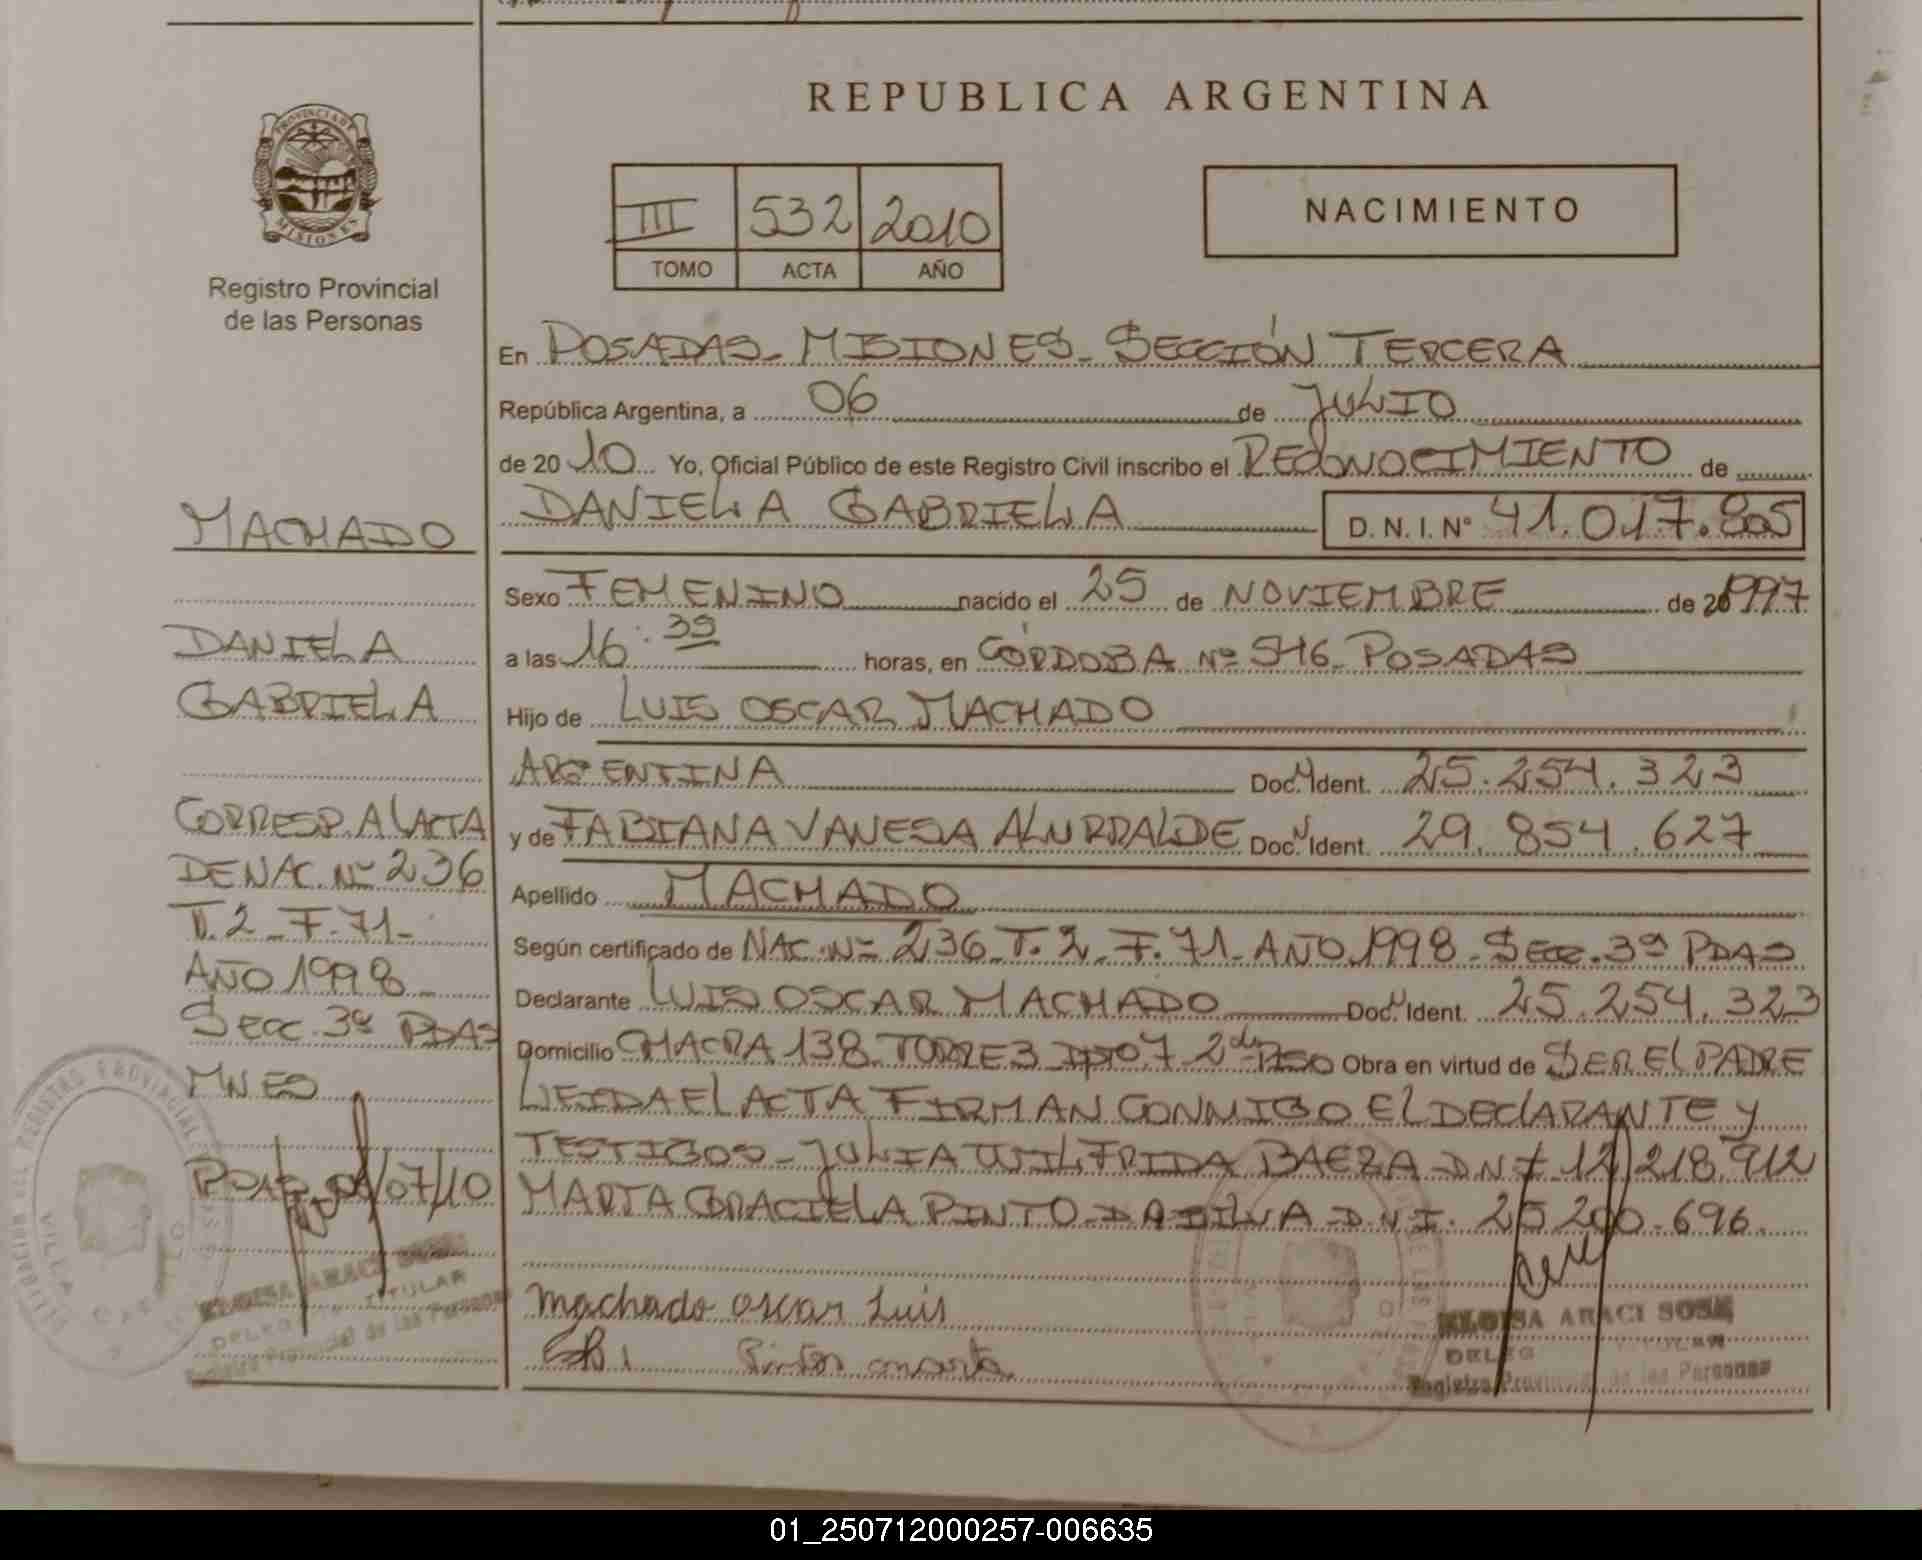 REPUBLICA ARGENTINA
PROVINCIA DE
MISIONES
Registro Provincial
de las Personas
III 532 2010
TOMO ACTA AÑO
NACIMIENTO
En POSADAS - MISIONES - SECCIÓN TERCERA
República Argentina, a 06 de JULIO
de 2010 Yo, Oficial Público de este Registro Civil inscribo el RECONOCIMIENTO de
DANIELA GABRIELA D. N. I. N° 41.017.805
Sexo FEMENINO nacido el 25 de NOVIEMBRE de 1997
a las 16:39 horas, en CÓRDOBA Nº 546 POSADAS
Hijo de LUIS OSCAR MACHADO
ARGENTINA Doc. N Ident. 25.254.323
y de FABIANA VANESA ALURRALDE Doc. N Ident. 29.854.627
Apellido MACHADO
Según certificado de NAC. Nº 236 T. 2 - F. 71 - AÑO 1998 - SECC. 3ª PDAS
Declarante LUIS OSCAR MACHADO Doc. N Ident. 25.254.323
Domicilio CHACRA 138 TORRE 3 DPTO 7 2do PISO Obra en virtud de SER EL PADRE
LEIDA EL ACTA FIRMAN CONMIGO EL DECLARANTE Y
TESTIGOS - JULIA WILFRIDA BAEZA D.N.I 12.218.912
MARTA GRACIELA PINTO DA SILVA D.N.I. 25.200.696.
Machado oscar Luis
Pinto marta
ELOISA ARACI SOSA
DELEG TITULAR
Registro Provincial de las Personas
MACHADO
DANIELA
GABRIELA
CORRESP. A L ACTA
DE NAC. Nº 236
T. 2 - F. 71 -
AÑO 1998
SECC. 3ª PDAS
MNES
PDAS 06/07/10
ELOISA ARACI SOSA
DELEG TITULAR
Registro Provincial de las Personas
VILLA CABELLO
01_250712000257-006635